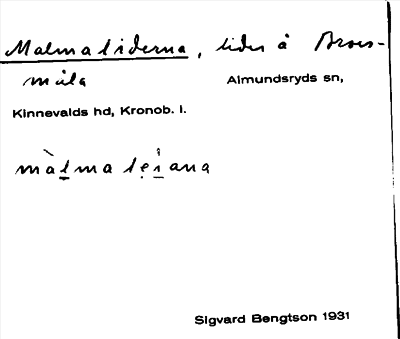 Malmaliderna, lider å Broes-
måla Almundsryds sn,
Kinnevalds hd, Kronob. l.
màl̠ma lẹi̠ana
Sigvard Bengtson 1931